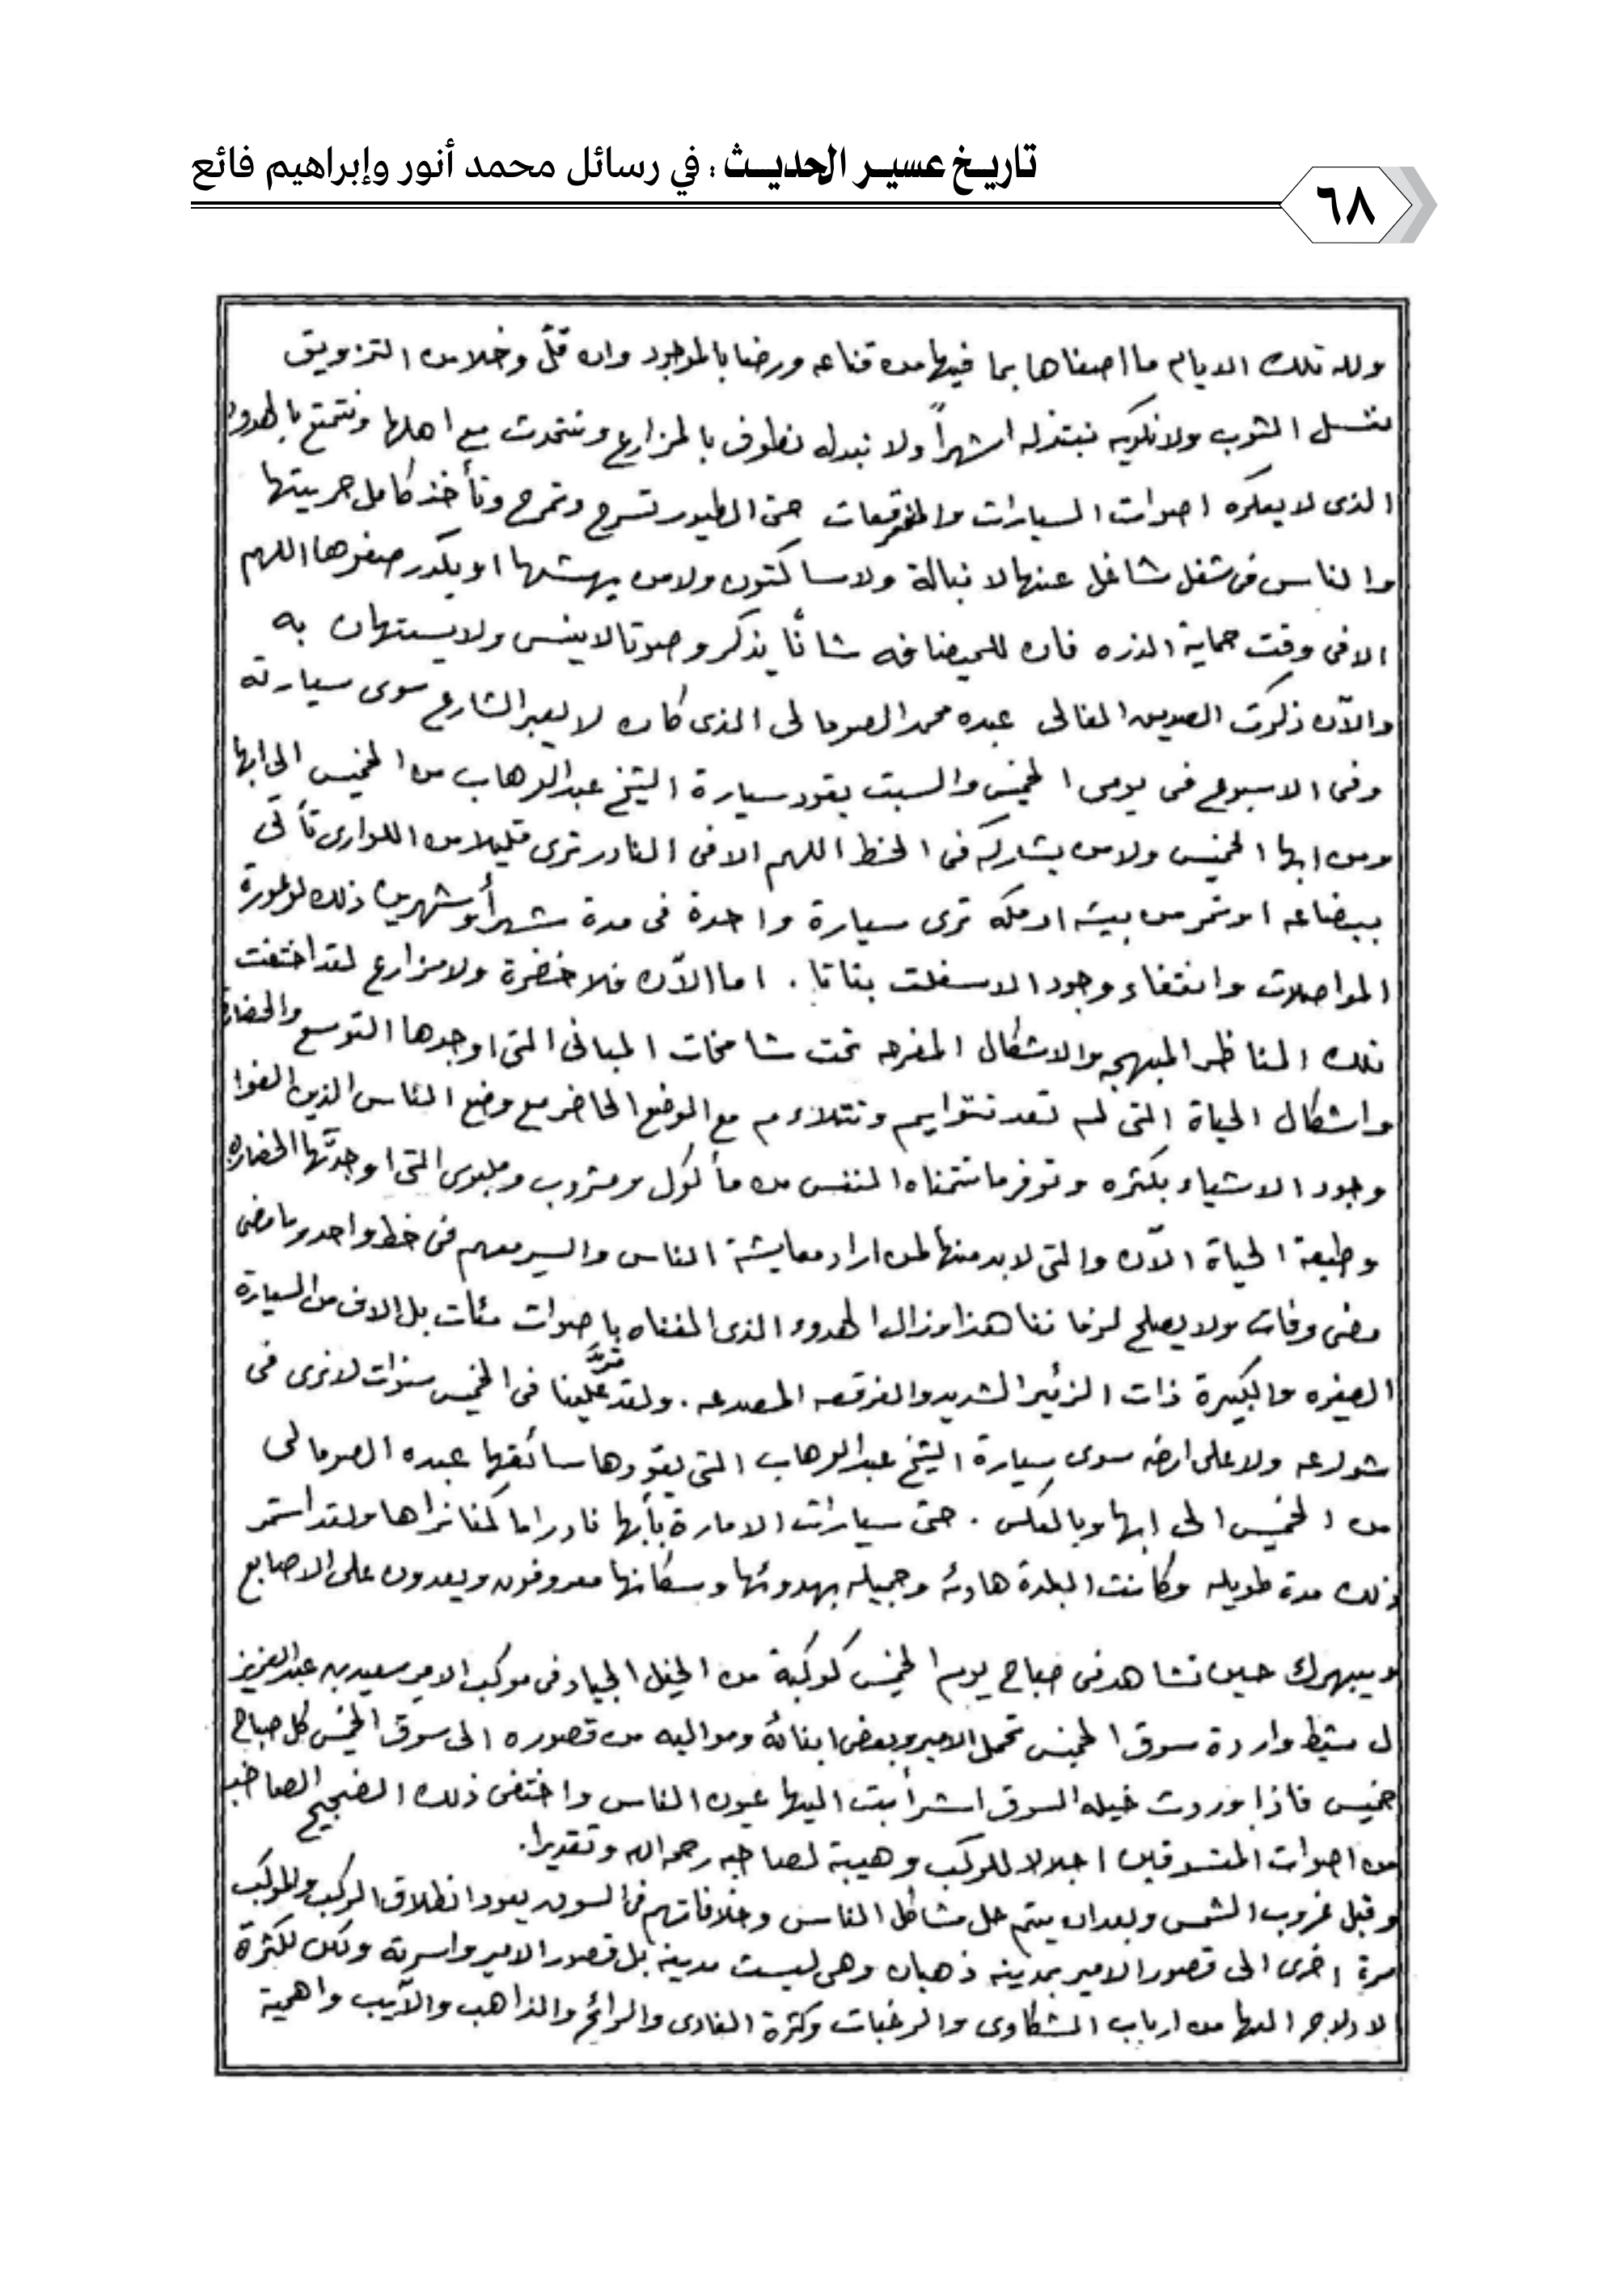 تاريخ عسير الحديث : في رسائل محمد أنور وإبراهيم فائع
٦٨
ولله تلك الايام ما اصفاها بما فيها من قناعه ورضا بالموجود وان قلَّ وخلا من التزويق
نغسل الثوب ولا نكويه نبتذله اشهراً ولا نبدله نطوف بالمزارع ونتحدث مع اهلها ونتمتع بالهدوء
الذى لا يعكره اصوات السيارات والمفرقعات حتى الطيور تسرح وتمرح وتأخذ كامل حريتها
والناس فى شغل شاغل عنها لا نبالة ولا ساكتون ولا من يهشها او يكدر صفوها اللهم
الا فى وقت حماية الذره فان للميضافه شأنا يذكر وصوتا لا ينسى ولا يستهان به
والآن ذكرت الصديق الغالى عبده محمد الصومالى الذى كان لا يعبر الشارع سوى سيارته
وفى الاسبوع فى يومى الخميس والسبت يقود سيارة الشيخ عبدالوهاب من الخميس الى ابها
ومن ابها الخميس ولا من يشاركه فى الخط اللهم الا فى النادر ترى قليلا من اللوارى تأتى
ببضاعه او تمر من بيشه او مكه ترى سيارة واحدة فى مدة شهر أو شهرين ذلك لوعورة
المواصلات وانتفاء وجود الاسفلت بتاتا . اما الآن فلا خضرة ولا مزارع لقد اختفت
تلك المناظر المبهجه والاشكال المفرحه تحت شامخات المبانى التى اوجدها التوسع والحضارة
واشكال الحياة التى لم تعد تتوايم وتتلاءم مع الوضع الحاضر مع وضع الناس الذين الفوا
وجود الاشياء بكثره وتوفر ما تتمناه النفس من مأكول ومشروب وملبوس التى اوجدتها الحضاره
وطبيعة الحياة الآن والتى لا بد منها لمن اراد معايشة الناس والسير معهم فى خط واحد وما مضى
مضى وفات ولا يصلح لزماننا هذا وزال الهدوء الذى الفناه باصوات مئات بل الاف من السيارة
الصغيره والكبيرة ذات الزئير الشديد والفرقعه المصدعه . ولقد تمرَّ علينا فى الخميس سنوات لا نرى فى
شوارعه ولا على ارضه سوى سيارة الشيخ عبدالوهاب التى يقودها سائقها عبده الصومالى
من الخميس الى ابها وبالعكس . حتى سيارات الامارة بأبها نادرا ما كنا نراها ولقد استمر
ذلك مدة طويله وكانت البلدة هادئه وجميله بهدوئها وسكانها معروفون ويعدون على الاصابع
ويبهرك حين تشاهد فى صباح يوم الخميس كوكبة من الخيل الجياد فى موكب الامير سعيد بن عبدالعزيز
ال مشيط واردة سوق الخميس تحمل الامير وبعض ابنائه ومواليه من قصوره الى سوق الخميس كل صباح
خميس فاذا وردت خيله السوق اشرأبت اليها عيون الناس واختفى ذلك الضجيج الصاخب
من اصوات المتسوقين اجلالا للموكب وهيبة لصاحبه رحمه الله وتقديرا.
وقبل غروب الشمس وبعد ان يتم حل مشاكل الناس وخلافاتهم فى السوق يعود انطلاق الركب والموكب
مرة اخرى الى قصور الامير بمدينه ذهبان وهى ليست مدينه بل قصور الامير واسرته ولكن لكثرة
اليها من ارباب الشكاوى والرغبات وكثرة الغادى والرائح والذاهب والآيب واهمية